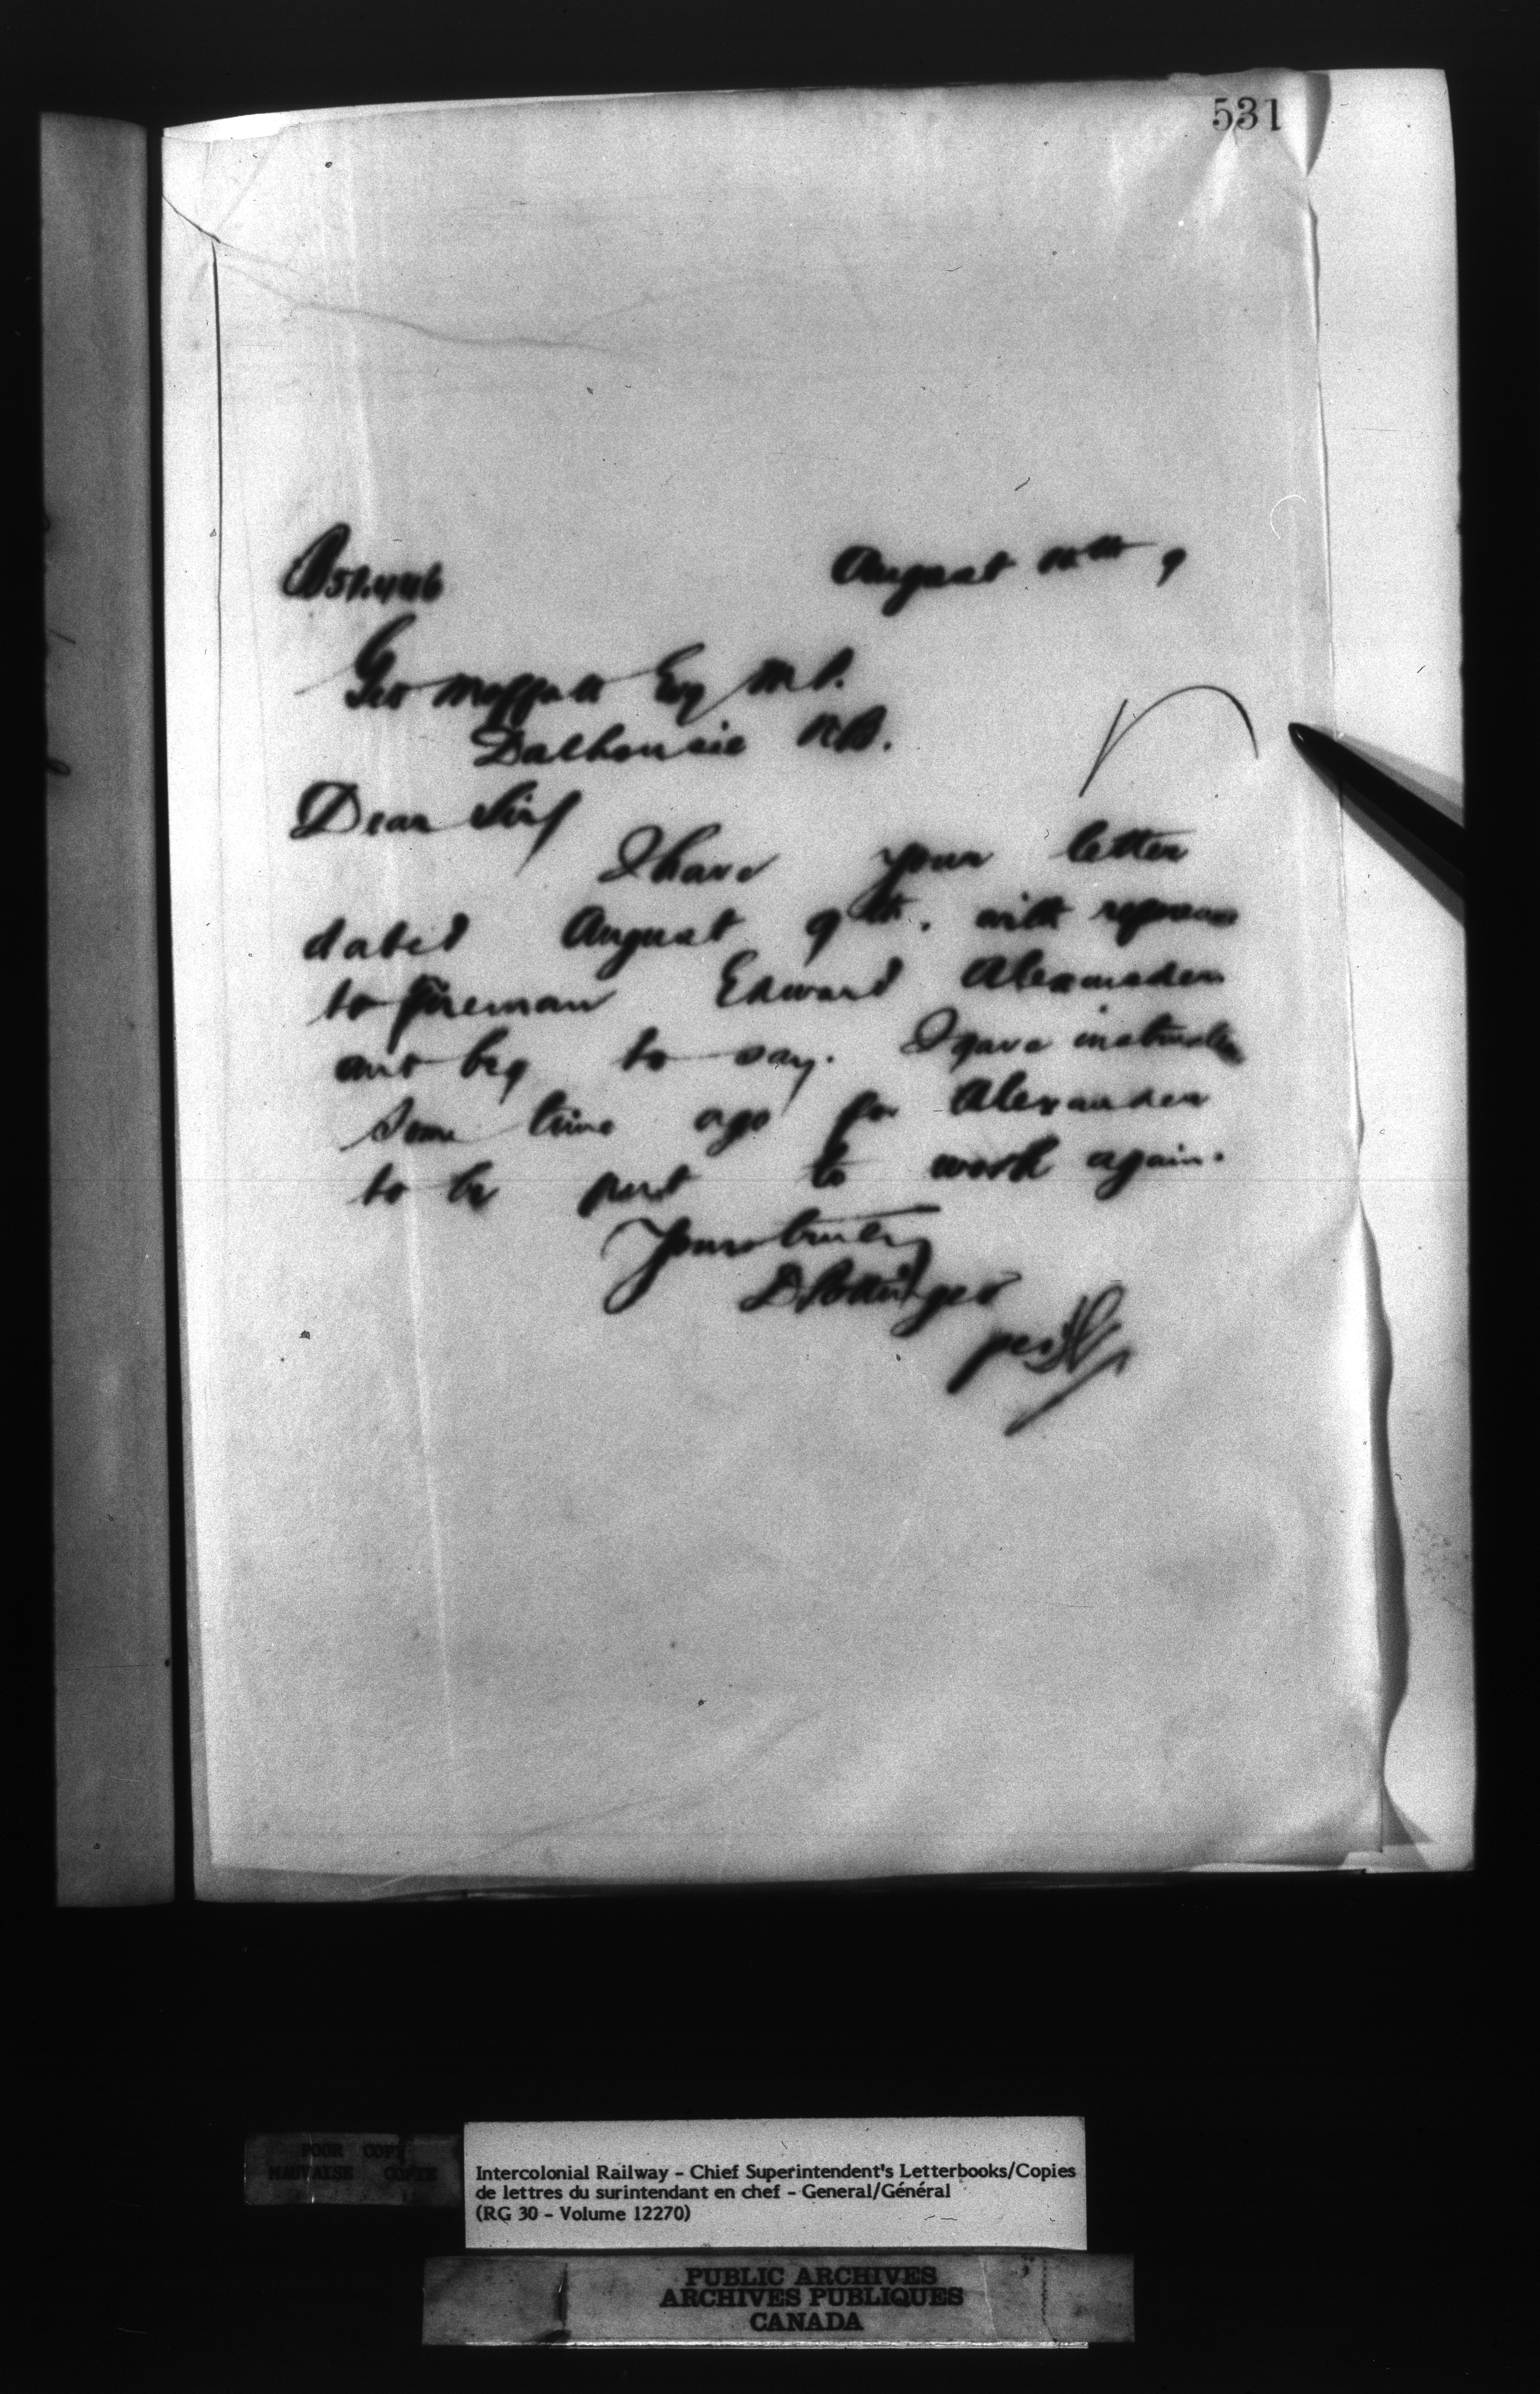 531
August 9
Geo Moffatt Esq M.P.
Dalhousie N.B.
Dear Sir/
I have your letter
dated August 9th. with reference
to fireman Edward Alexander
and beg to say. I gave instructions
some time ago for Alexander
to be put to work again.
Yours truly
D. Pottinger
per
POOR COPY
MAUVAISE COPIE
Intercolonial Railway - Chief Superintendent's Letterbooks/Copies
de lettres du surintendant en chef - General/Général
(RG 30 - Volume 12270)
PUBLIC ARCHIVES
ARCHIVES PUBLIQUES
CANADA